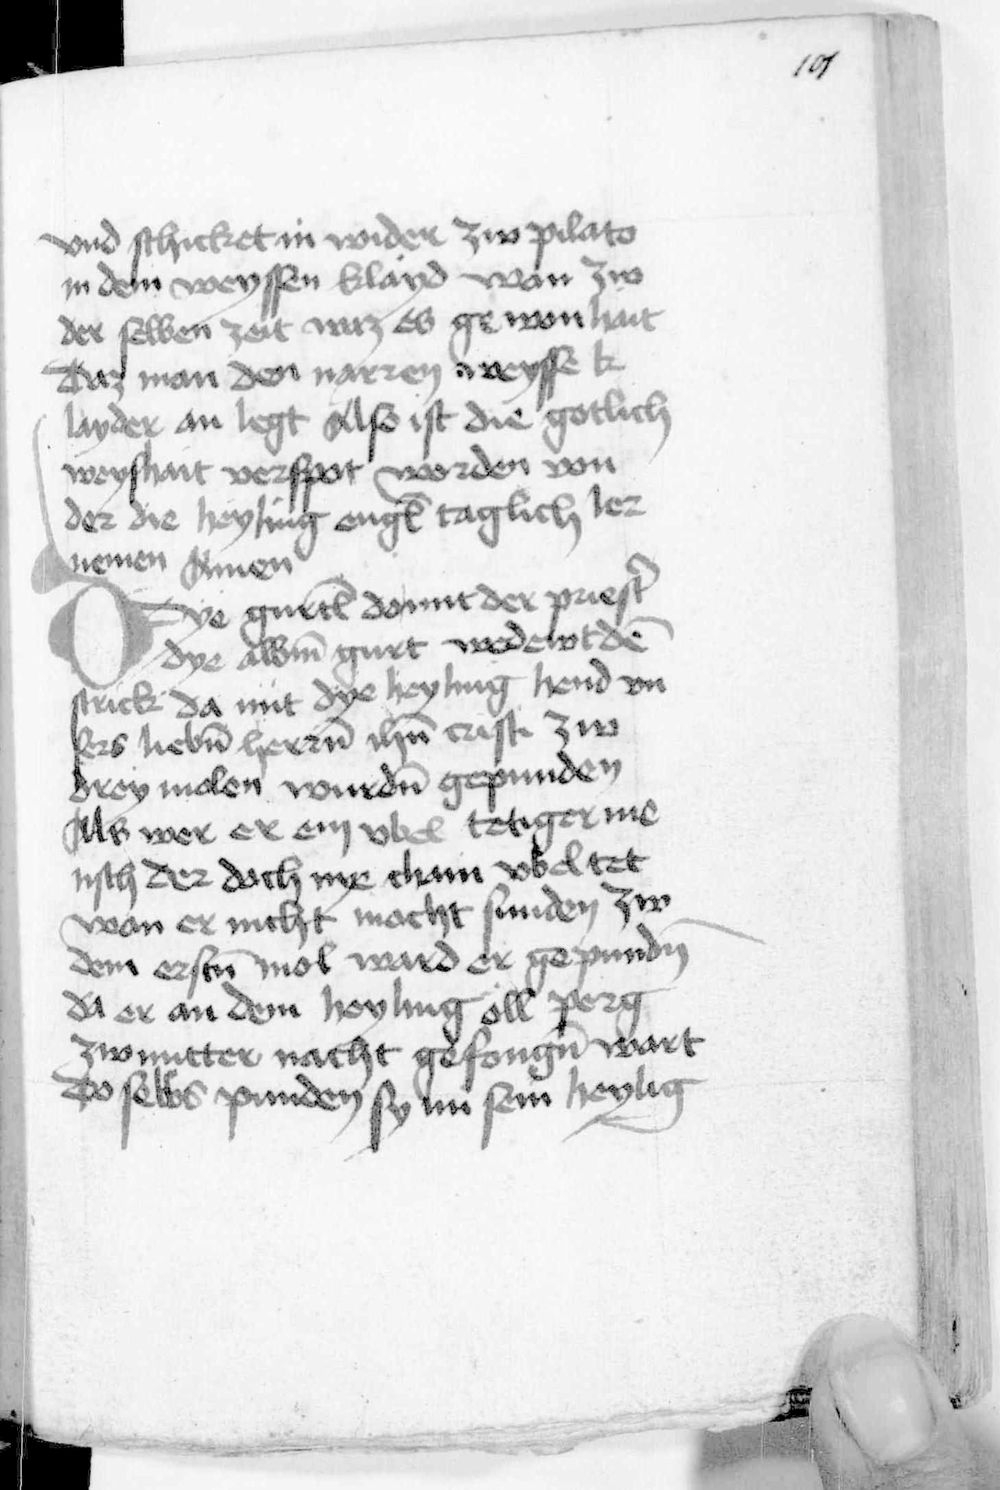 101
vnd schicket in wider zw pilato
in dem weyssen klayd wan zw
der selben zeit waz es gewonhait
daz man den narren weysse k
layder an legt Also ist die gotlich
weyshait verspot worden von
der die heyling engl̄ taglich ler
nemen Amen
Dye gurtl̄ domit der priest̄
dye albm̄ gurt wedewt dē
strick da mit dye heyling hend vn
sers liebn̄ herrn̄ ihū cristi zw
drey molen wurdn̄ gepunden
Als wer er ein vbel tetiger me
nsch der doch nye chain vbel tet
wan er nicht mocht sunden zw
dem erstn̄ mol ward er gepundn̄
da er an dem heyling öll perg
zw mitter nacht gefongn̄ wart
Do selbs punden sy im sein heylig